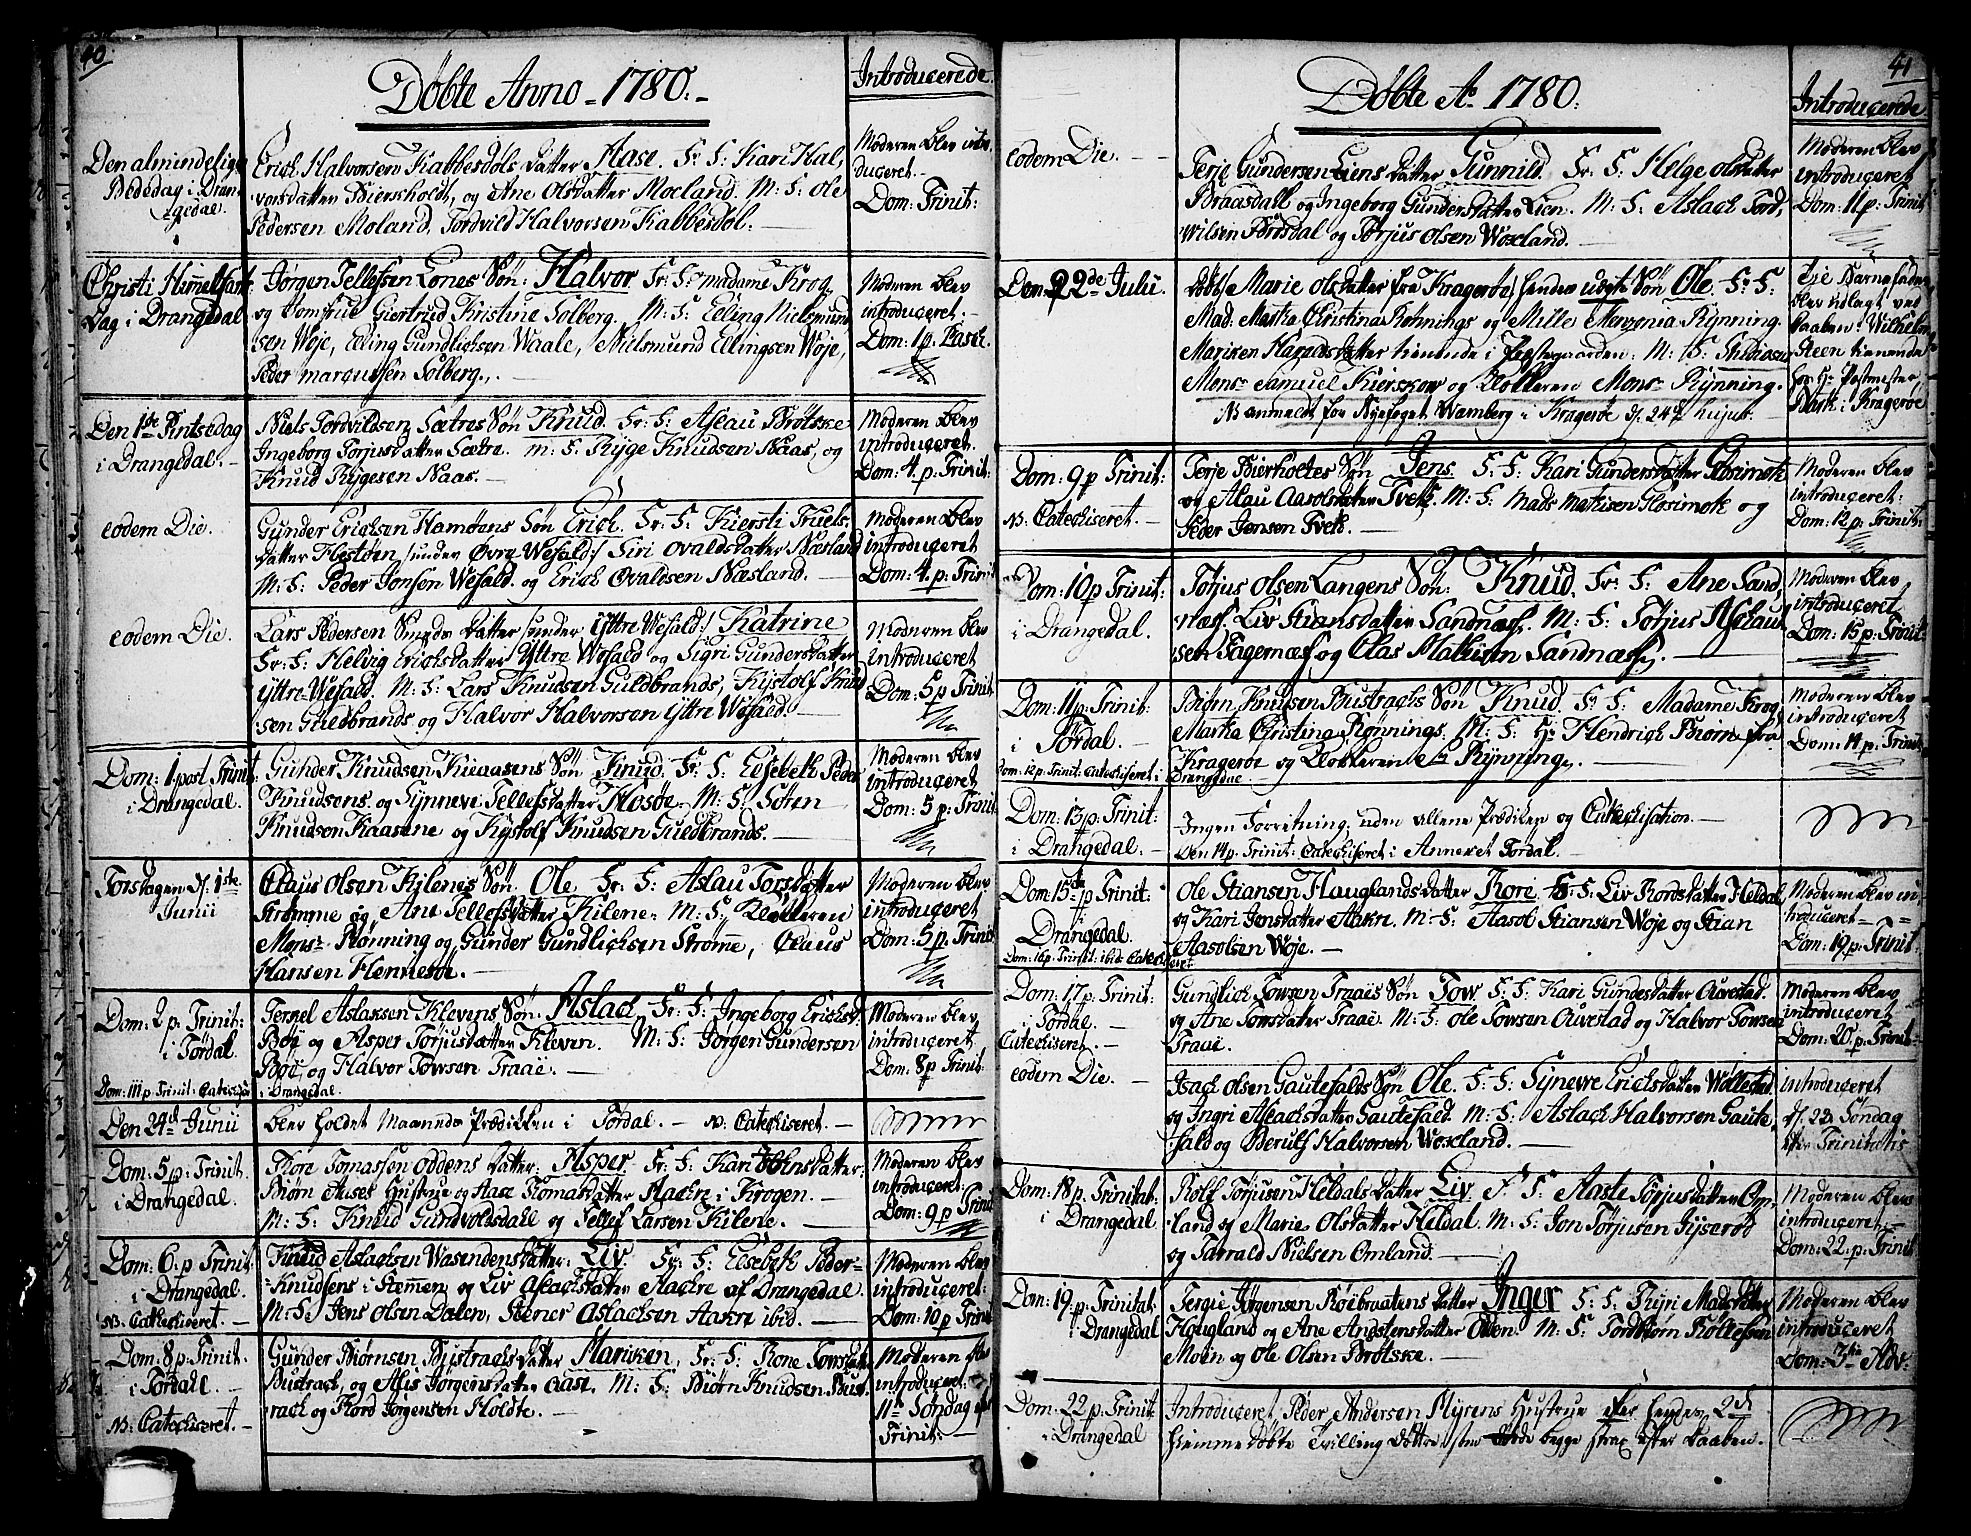 40.
Døbte Anno - 1780. -
Introducerede.
Den almindelige
Bededag i Dran-
gedal.
Erich Halvorsen Kabbesdøls datter Aase. Fr: F: Kari Hal,
vorsdatter Biersholdt, og Ane Olsdatter Moeland. M: F: Ole
Pedersen Moland, Tordvild Halvorsen Kabbesdøl. -
Moderen blev intro,
duceret. -
Dom: Trinit:
Christi Himmelfart
Dag i Drangedal
Jørgen Tellefsen Lones Søn: Halvor Fr: F: Madame Krog
og Jomfrue Giertrud Kristine Solberg. M: F: Elling Nielsmund
sen Woje, Elling Gundlichsen Waale, Nielsmund Ellingsen Woje,
Peder Marcussen Solberg. -
Moderen blev
introduceret. -
Dom: 1 p. Pasch:
Den 1ste Pintsedag
i Drangedal. -
Niels Tordvildsen Sætres Søn Knud. Fr: F: Aslau Brøtske
Ingeborg Torjusdatter Sætre. M: F: Kyge Knudsen Naas, og
Knud Kygesen Naas. -
Moderen blev
introduceret
Dom: 4 p. Trinit:
eodem Die.
Gunder Erichsen Hamøens Søn Erich. Fr: F: Kiersti Truels,
datter Hestøen /under Øvre Wefald:/ Siri Ovaldsdatter Næsland
M: F: Peder Jonsen Wefald og Erich Ovaldsen Næsland. -
Moderen blev
introduceret
Dom: 4 p: Trinit
eodem Die.
Lars Pedersen datter /under Yttre Wefald:/ Katrine
Fr: F: Helvig Erichsdatter Yttre Wefald og Sigri Gundersdatter
Yttre Wefald. M: F: Lars Knudsen Guldbrands, Kjstolf Knud
sen Guldbrands og Halvor Halvorsen Yttre Wefald. -
Moderen blev
introduceret
Dom: 5 p Trinit.
Dom: 1 post Trinit
i Drangedal.
Gunder Knudsen Kieaasens Søn Knud. Fr: F: Elsebeth Peder
Knudsens og Synneve Tellefsdatter Hosøe. M: F: Søren
Knudsen Kaasene og Kjstolf Knudsen Guldbrands. -
Moderen blev
introduceret
Dom: 5 p: Trinit
Torsdagen d: 1ste
Junii
Claus Olsen Kilenes Søn. Ole Fr: F: Aslau Torsdatter
Strømme og Ane Tellefsdatter Kilene. M: F: Klokkeren
Monsr Rønning og Gunder Gundlichsen Strømme, Claus
Hansen Hennesøe. -
Moderen blev
introduceret
Dom: 5 p. Trinit
Dom: 2 p: Trinit:
i Tørdal.
Terkel Aslaksen Klevens Søn: Aslach. Fr: F: Ingeborg Erichsd
Bøe og Asper Torjusdatter Kleven. M: F: Jørgen Gundersen
Bøe, og Halvor Towsen Traaé. -
Moderen blev
introduceret
Dom: 8 p Trinit:
Dom: III p: Trinit: Catechiseret i Drangedal.
Den 24de Junii
blev holdet Maaneds Prædiken i Tørdal. - NB: Catechiseret. -
Dom: 5 p. Trinit
i Drangedal.
Tore Tomassen Oddens datter: Asper Fr: F: Kari Johnsdatter
Biørn Auses Hustrue og Aase Tomasdatter Aachre i Krogen.
M: F: Knud Gundvoldsdahl og Tellef Larsen Kilene. -
Moderen blev
introduceret:
Dom: 9 p Trinit
Dom: 6. p Trinit
i Drangedal.
NB: Catechiseret. -
Knud Aslachsen Wasendens datter: Liv. Fr: F: Elsebeth Peder-
Knudsens i Stemmen og Liv Aslachsdatter Aachre af Drangedal
M: F: Jens Olsen Dalen, Stener Aslachsen Aakre ibid. -
Moderen blev
introduceret:
Dom: 10 p Trinit
Dom: 8 p: Trinit.
i Tørdall. -
NB: Catechiseret. -
Gunder Biørnsen Bustrachs datter Mariken, Fr: F: Tone Towsdatt
Bustrach, og Asis Jørgensdatter Aase. M: F: Biørn Knudsen Bust
rach og Tord Jørgensen Holdte. -
Moderen blev
introduceret:
11te Søndag efter
Trinit: -
41
Døbte Ao 1780.
Introducerede.
eodem Die. -
Terje Gundersen Liens datter Gunnild. Fr: F: Helge Olsdatter
Braasdall og Ingeborg Gundersdatter Lien. M: F: Aslach Tord,
wilsen Brødsdal og Torjus Olsen Woxland. -
Moderen blev
introduceret
Dom: 11 p: Trinit
Den 22de Julii.
døbt Marie Olsdatter fra Kragerøe hendes uægte Søn Ole. Fr: F:
Mad. Martha Christina Rønnings og Mille Rynning.
Mariken Haraldsdatter tienende i Præstegaarden: M: F: Studiosus
Monsr Samuel Kierschow og Klokkeren Monsr Rynning.
NB anmeldt for Byefoget Wamberg i Kragerøe d. 24de hujus.
Barnefader
blev udlagt ved
Daaben: Wilhelm
Steen tienende
hos Hr Postmester
Bark i Kragerøe
Dom: 9 p Trinit:
NB: Catechiseret. -
Terje Bierholtes Søn Jens. F: F: Kari Gundersdatter Glosimodt
og Aslau Aasolsdatter Tvett. M: F: Mads Mathisen Glosimodt og
Peder Jensen Tvett.
Moderen blev
introduceret:
Dom: 12 p: Trinit:
Dom: 10 p Trinit:
i Drangedal.
Torjus Olsen Langens Søn: Knud. Fr: F: Ane Sand,
næss. Liv Stiansdatter Sandnæss. M: F: Torjus Aslau
sen Fagernæs og Clas Mathisen Sandnæss. -
Moderen blev
introduceret
Dom: 15 p: Trinit
Dom: 11 p: Trinit:
i Tørdal. -
Biørn Knudsen Bustrachs Søn Knud Fr: F: Madame Krog,
Martha Christina Rønnings. M: F: Hr Hendrich Biørn fra
Kragerøe og Klokkeren Rynning. -
Moderen blev
introduceret
Dom: 14 p: Trinit:
Dom: 12 p: Trinit: Catechiseret i Drangedal
Dom: 13 p: Trinit:
i Drangedal. -
Ingen Forretning, uden allene Prædiken og Catechisation. -
Den 14 p: Trinit: Catechiseret i Annexet Tørdal. -
Dom: 15de p Trinit:
i
Drangedal.
Dom: 16 p: Trinit: ibid: Catechiseret
Ole Stiansen Hauglands datter Tore. F: F: Liv Tordsdatter Heldal
og Kari Jonsdatter Aakre. M: F: Aasol Stiansen Woje og Stian
Aasolsen Woje. -
Moderen blev in
troduceret -
Dom: 19 p: Trinit:
Dom: 17 p: Trinit:
i Tørdal. -
Catechiseret. -
Gundlich Towsen Traaes Søn Tow. F: F: Kari Gundersdatter Auvestad.
og Ane Towsdatter Traaé. M: F: Ole Towsen Auvestad og Halvor Towsen
Traaé.
Moderen blev
introduceret
Dom: 20. p: Trinit
eodem Die. -
Isach Olsen Gautefalds Søn Ole. F: F: Synevre Erichsdatter
og Ingri Aslachsdatter Gautefald. M: F: Aslach Halvorsen Gaute,
fald og Berulf Halvorsen Woxland. -
introduceret
d. 22 Søndag
efter Trinitatis
Dom: 18 p: Trinitat:
i Drangedal.
Rolf Torjusen Heldals datter Liv F: F: Aaste Torjusdatter Om,
land og Marie Olsdatter Heldal. M: F: Jon Torjusen Gjserød
og Tarrald Nielsen Omland. -
Moderen blev
introduceret -
Dom: 22. p: Trinit
Dom: 19. p: Trinitat
i Drangedal
Tergie Jørgensen Roebraatens datter Inger F: F: Kyri Madsdatter
Haugland og Ane Anstensdatter Oden. M: F: Tordbiørn Rollefsen
Moen og Ole Olsen Brøtske. -
Moderen blev
introduceret
Dom: 3tia Adv:
Dom: 22. p: Trinit:
i Drangedal
Introduceret Peder Andersen Myrens Hustrue efter hendes 2de
hiemmedøbte Tvilling døttre, som døde begge strax efter Daaben.